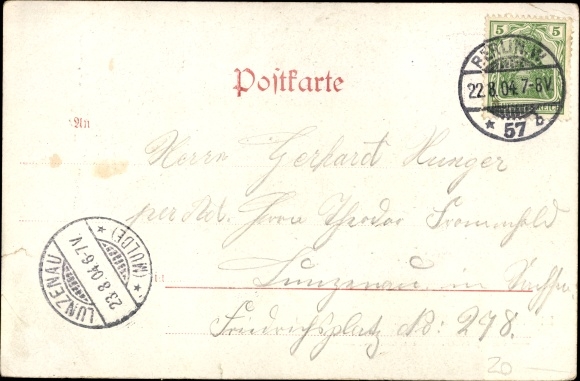 5 5
BERLIN W.
22.8.04.7-8V.
* 57 b
REICH
Postkarte
An
Herrn Gerhard Hunger
per Adr. Herrn Theodor Frommhold
Lunzenau in Sachsen
Friedrichsplatz No: 298.
LUNZENAU
23.8.04.6-7V.
* (MULDE) *
20